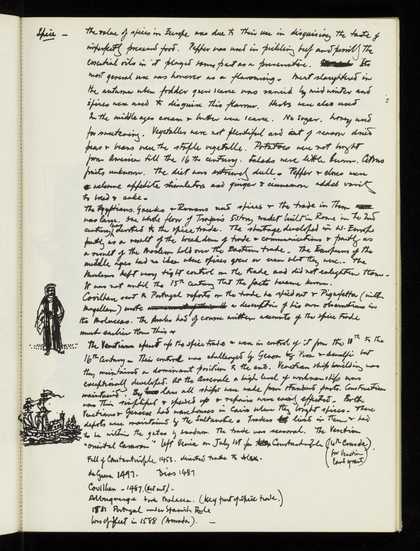 Spice — The value of spices in Europe was due to their use in disguising the taste of
imperfectly preserved food. Pepper was used in pickling beef and possibly the
essential oils in it played some part as a preservative. Its
most general use was however as a flavouring. Meat slaughtered in
the autumn when fodder grew scarce was rancid by mid winter and
spices were used to disguise this flavour. Herbs were also used.
In the middle ages cream & butter were scarce. No sugar. Honey used
for sweetening. Vegetables were not plentiful and out of season dried
peas & beans were the staple vegetable. Potatoes were not brought
from America till the 16th century. Salads were little known. Citrus
fruits unknown. The diet was extremely dull. Pepper & cloves were
welcome appetite stimulators and ginger & cinnamon added variety
to bread & cake.
The Egyptians, Greeks & Romans used spices & the trade in them
was large. One whole floor of Trajan's 5 storey market built in Rome in the 2nd
century devoted to the spice trade. The shortage developed in W. Europe
partly as a result of the breakdown of trade & communications & partly as
a result of the Moslem hold over the Eastern trade. The Europeans of the
middle ages had no idea where spices grew or even what they were. The
Moslems kept very tight control on the trade and did not enlighten them.
It was not until the 15th century that the facts became known.
Covilham sent to Portugal reports on the trade he spied out & Pigafetta (with
Magellan) wrote a description of his own observations in
the Moluccas. The Arabs had of course written accounts of the spice trade
much earlier than this.
The Venetians spent up the spice trade & were in control of it from the 11th to the
16th century — This control was challenged by Genoa by Pisa & Amalfi but
they maintained a dominant position to the end. Venetian shipbuilding was
exceptionally developed. At the Arsenale a high level of workmanship was
maintained. The ships were made from standard parts. Construction
was thus simplified & speeded up & repairs were easily effected. Both
Venetians & Genoese had warehouses in Cairo where they bought spices. These
depots were maintained by the Sultanate & Traders lived in them & had
to be within the gates by sundown. The trade was seasonal. The Venetian
"oriental caravan" left Venice on July 1st for Constantinople (4th Crusade)
Fall of Constantinople 1453. diverted trade to Alex.
da Gama 1497. Dias 1487
Covilham – 1487
Albuquerque took Malacca. (Key port of spice trade)
1581 Portugal under Spanish Rule
Loss of fleet in 1588 (Armada). —